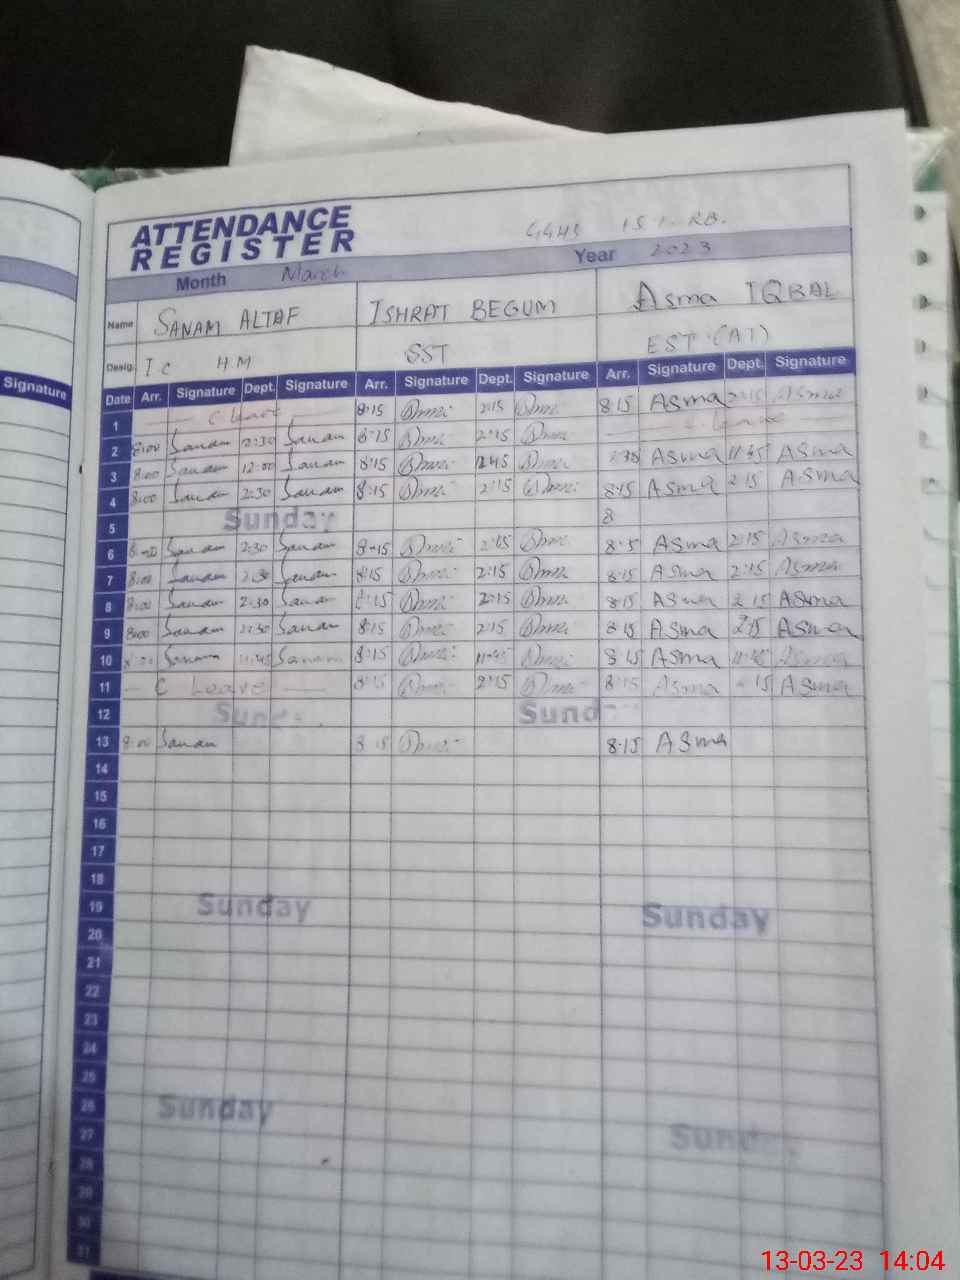 ATTENDANCE
REGISTER
GGHS 151. RB.
Month March Year 2023
Name SANAM ALTAF ISHRAT BEGUM Asma IQBAL
Desig. I C H.M SST EST (AT)
Signature
Date Arr. Signature Dept. Signature Arr. Signature Dept. Signature Arr. Signature Dept. Signature
1 C Leave 8:15 2:15 8:15 Asma 2:15 Asma
2 8:00 Sanam 2:30 Sanam 8:15 2:15 C. Leave
3 8:00 Sanam 12:00 Sanam 8:15 12:45 Asma 11:45 Asma
4 8:00 Sanam 2:30 Sanam 8:15 2:15 8:15 Asma 2:15 Asma
5 Sunday 8
6 Sanam 2:30 Sanam 8:15 2:15 Asma 2:15 Asma
7 8:00 Sanam 2:30 Sanam 8:15 2:15 8:15 Asma 2:15 Asma
8 8:00 Sanam 2:30 Sanam 8:15 2:15 8:15 Asma 2:15 Asma
9 8:00 Sanam 2:30 Sanam 8:15 2:15 8:15 Asma 2:15 Asma
10 Sanam 11:45 Sanam 8:15 11:45 8:15 Asma 11:45 Asma
11 C Leave 8:15 2:15 8:15 Asma 15 Asma
12 Sunday Sunday
13 8:00 Sanam 8:15 8:15 Asma
14
15
16
17
18
19 Sunday Sunday
20
21
22
23
24
25
26 Sunday
27 Sunday
28
29
30
31
13-03-23 14:04